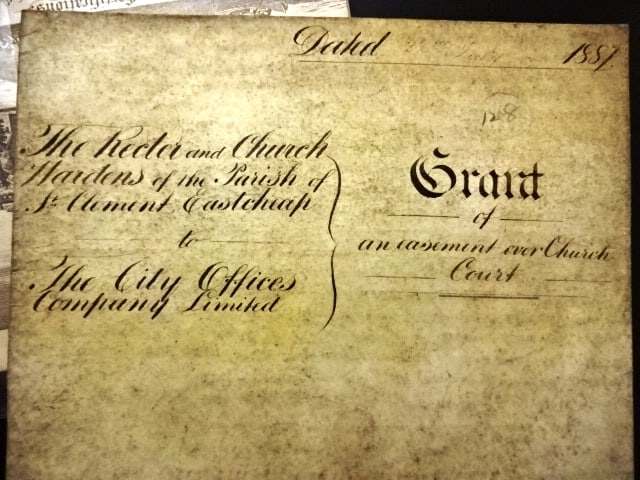 Dated 1887
1208
The Rector and Church
Wardens of the Parish of
St Clement Eastcheap
to
The City Offices
Company Limited
Grant
of
an easement over Church
Court